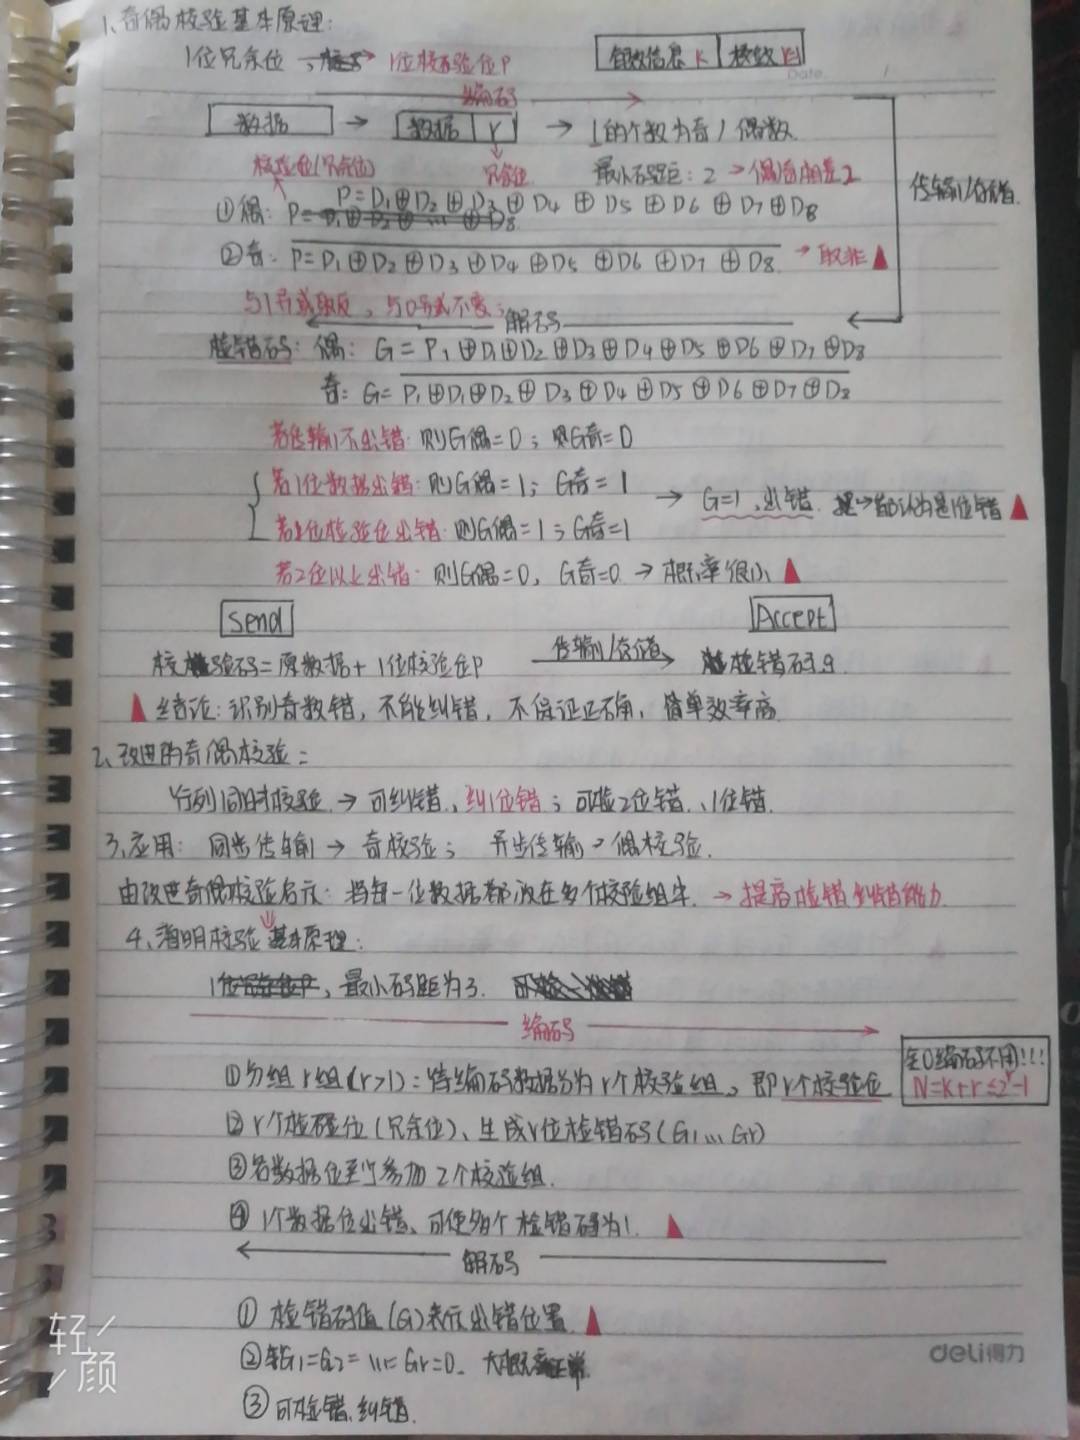 1、奇偶校验基本原理:
1位冗余位 → 1位校验位P
有效信息 K 校验 r=1
Date. /
编码
数据 → 数据 r → 1的个数为奇/偶数
校验位(冗余位) 冗余位 最小码距: 2 → 偶/奇相差2
传输/存储
①偶: P=D1⊕D2⊕D3⊕D4⊕D5⊕D6⊕D7⊕D8
②奇: P=D1⊕D2⊕D3⊕D4⊕D5⊕D6⊕D7⊕D8 → 取非
与1异或取反, 与0异或不变;
解码
检错码: 偶: G=P1⊕D1⊕D2⊕D3⊕D4⊕D5⊕D6⊕D7⊕D8
奇: G=P1⊕D1⊕D2⊕D3⊕D4⊕D5⊕D6⊕D7⊕D8
若传输不出错: 则G偶=0; 则G奇=0
若1位数据出错: 则G偶=1; G奇=1
→ G=1、出错. 都认为是1位错
若1位检验位出错: 则G偶=1; G奇=1
若2位以上出错: 则G偶=0, G奇=0 → 概率很小
Send Accept
校验码=原数据+1位校验位P 传输/存储 检错码g
结论: 识别奇数错, 不能纠错, 不保证正确, 简单效率高
2、改进的奇偶校验:
行列同时校验 → 可纠错、纠1位错; 可检2位错、1位错.
3、应用: 同步传输 → 奇校验; 异步传输 → 偶校验.
由改进奇偶校验启示: 将每一位数据都放在多个校验组中. → 提高检错纠错能力
4、海明校验基本原理:
最小码距为3.
编码
全0编码不用!!!
N=K+r≤2^r-1
①分组r组(r>1): 待编码数据分为r个校验组, 即r个校验位
②r个检验位(冗余位)、生成r位检错码(G1...Gr)
③各数据位至少参加2个校验组.
④1个数据位出错、可使多个检错码为1.
解码
①检错码值(G)表示出错位置
②若G1=G2=...=Gr=0. 大概率正常
③可检错、纠错.
deli得力
轻颜